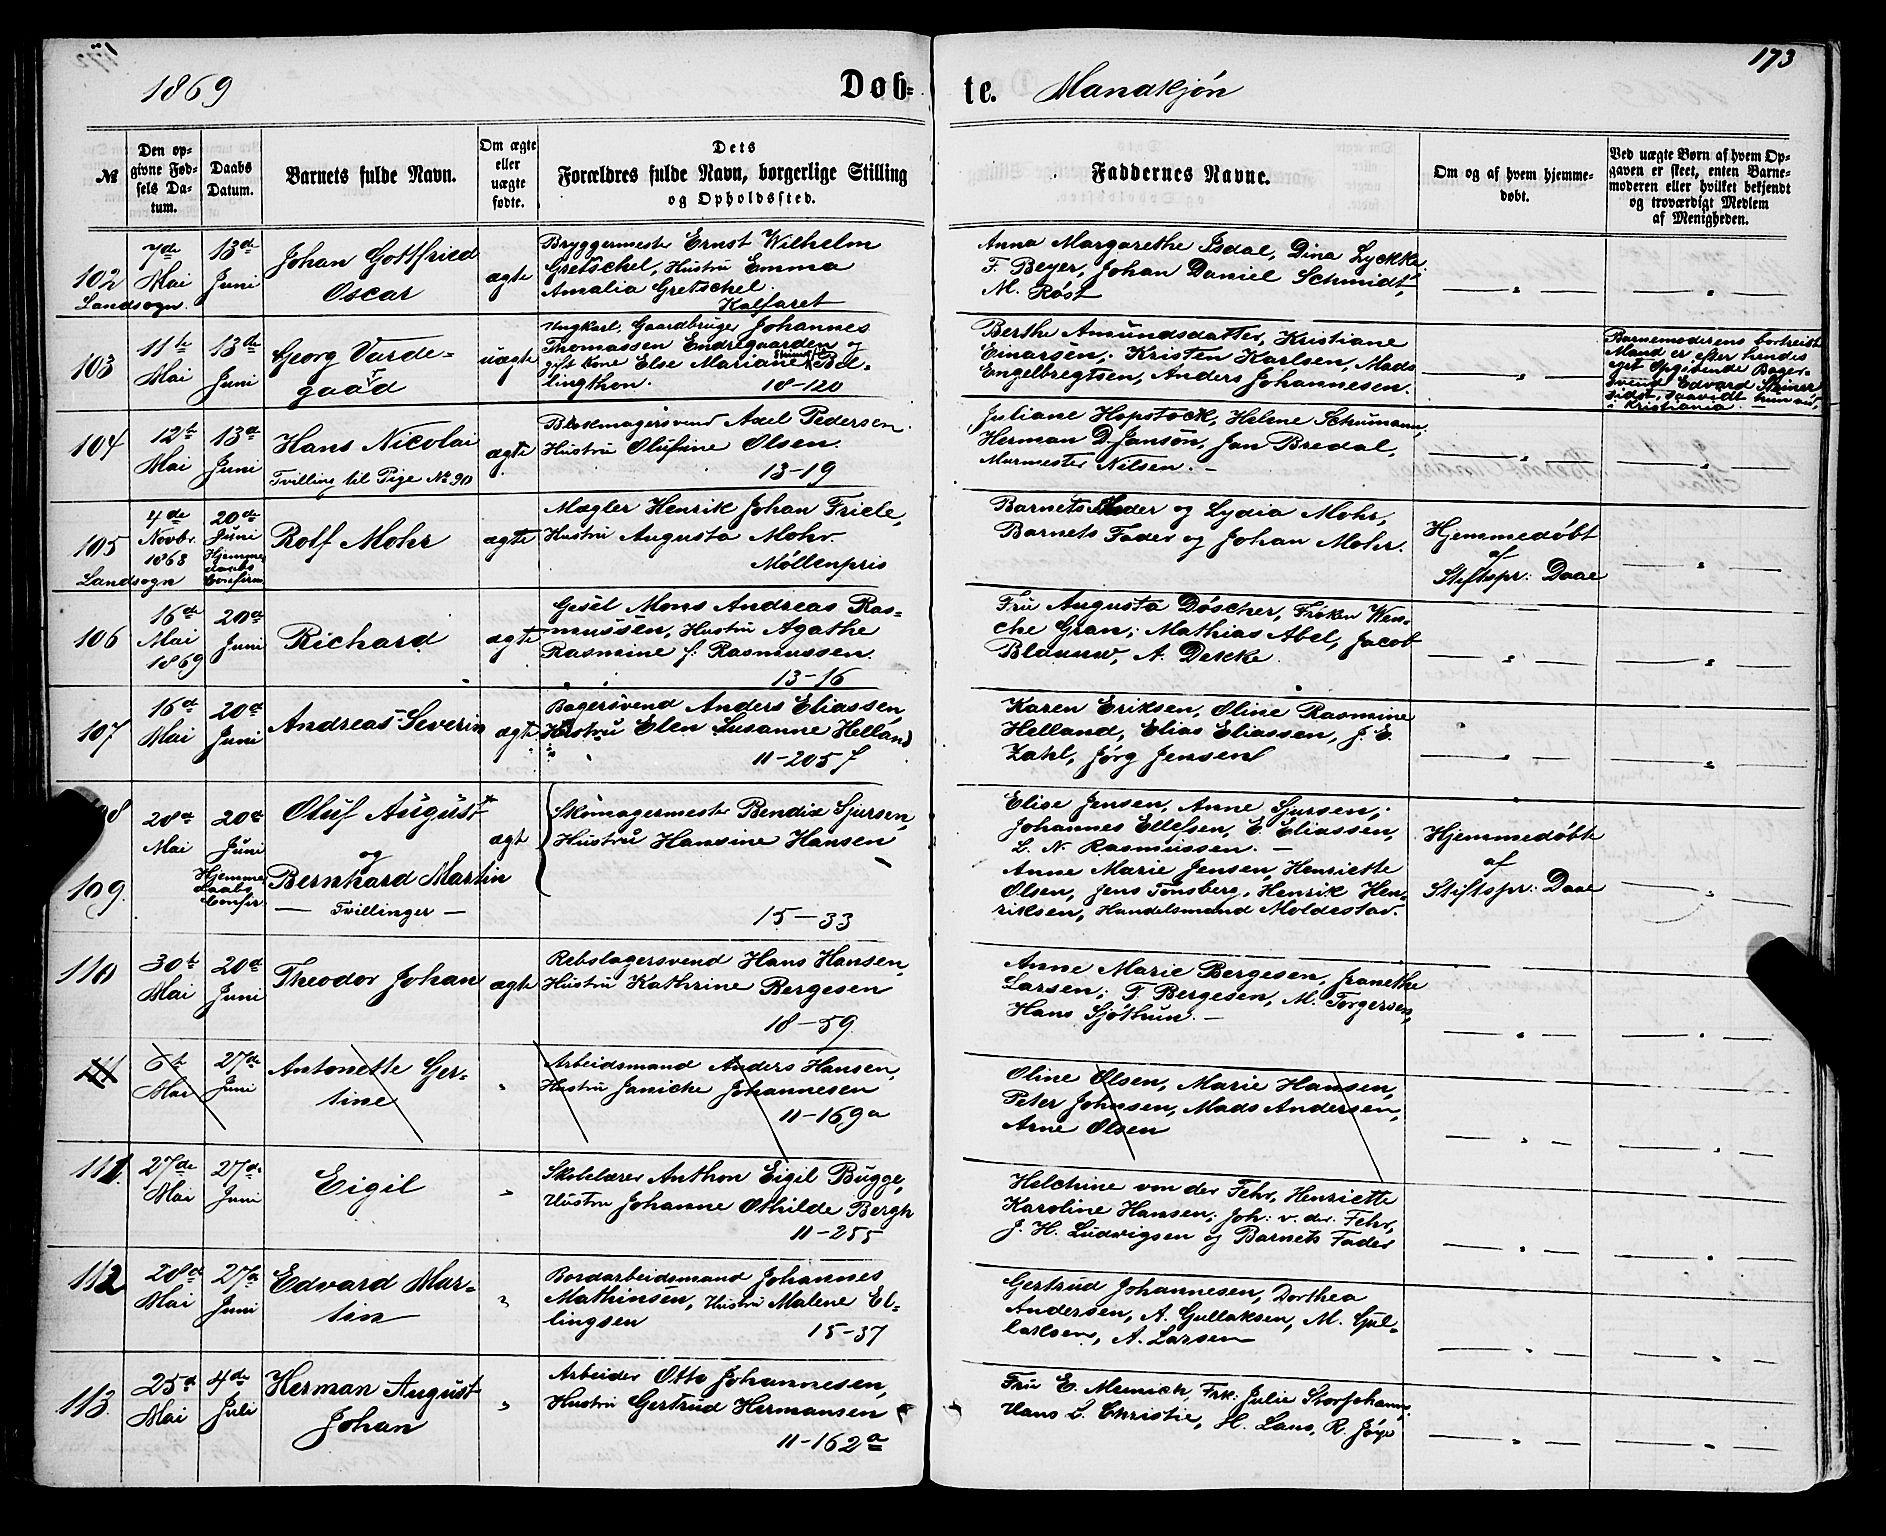 173
1869
Døb= te. Mandkjøn
№
Den op=
givne Fød=
sels Da=
tum.
Daabs
Datum.
Barnets fulde Navn.
Om ægte
eller
uægte
fødte.
Dets
Forældres fulde Navn, borgerlige Stilling
og Opholdssted.
Faddernes Navne.
Om og af hvem hjemme=
døbt.
Ved uægte Børn af hvem Op=
gaven er skeet, enten Barne=
moderen eller hvilket bekjendt
og troværdigt Medlem
af Menigheden.
102
Landsogn.
7de
Mai
13de
Juni
Johan Gottfried
Oscar
ægte
Bryggermester Ernst Wilhelm
Gretschel, Hustru Emma
Amalia Gretschel.
Kalfaret
Anna Margarethe Isdal, Dina Lyckke
F. Beyer, Johan Daniel Schmidt,
M. Røst
103
11te
Mai
13de
Juni
Georg Varde=
gaard
uægte
Ungkarl, Gaardbruger Johannes
Thomassen Endregaarden og
gift Kone Else Mariane
lingthon.
18-120
Berthe Amundsdatter, Kristiane
Einarsen, Kristen Karlsen, Mads
Engelbregtsen, Anders Johannesen.
Barnemoderens bortreiste
Mand er efter hendes
eget Opgivende Bager=
svend Edvard Steiner
sidst, saavidt hun ved,
i Kristiania.
104
12te
Mai
13de
Juni
Hans Nicolai
Tvilling til Pige No 90
ægte
Blokmagersvend Axel Pedersen
Hustru Olufine Olsen.
13-19
Juliane Hopstock, Helene Schumann,
Herman D. Janson, Jan Bredal,
Murmester Nilsen. -
105
Landsogn
4de
Novbr.
1868
20de
Juni
Hjemme
daabs
Confirm
Rolf Mohr
ægte
Mægler Henrik Johan Friele,
Hustru Augusta Mohr
Møllenpris
Barnets Moder og Lydia Mohr,
Barnets Fader og Johan Mohr.
Hjemmedøbt
af
Stiftspr: Daae
106
16de
Mai
1869
20de
Juni
Richard
ægte
Gesel Mons Andreas Ras=
mussen, Hustru Agathe
Rasmine f. Rasmussen.
13-16
Fru Augusta Døscher, Frøken Wen=
che Gran, Mathias Abel, Jacob
Blaauw, A. Dekke.
107
16de
Mai
20de
Juni
Andreas Severin
ægte
Bagersvend Anders Eliassen,
Hustru Elen Susanne Helland
11-205 f
Karen Eriksen, Oline Rasmine
Helland, Elias Eliassen, J. E.
Zahl, Jørg Jensen
8
109.
28de
Mai
20de
Juni
Hjemme
daabs
Confir.
Oluf August
og
Bernhard Martin
— Tvillinger —
ægte
Skomagermester Bendix Sjursen,
Hustru Hansine Hansen
15-33
Elise Jensen, Anne Sjursen,
Johannes Ellefsen, E. Eliassen,
L. N. Rasmussen. —
Anne Marie Jensen, Henriette
Olsen, Jens Tønsberg, Henrik Hen=
riksen, Handelsmand Moldestad.
Hjemmedøbte
af
Stiftspr: Daae
110
30te
Mai
20de
Juni
Theodor Johan
ægte
Rebslagersvend Hans Hansen,
Hustru Kathrine Bergesen
18-59.
Anne Marie Bergesen, Jranethe
Larsen; T. Bergesen, M. Torgersen,
Hans Sjøthun. -
111
6te
Mai
27de
Juni
Antonette Ger=
tine
Arbeidsmand Anders Hansen,
Hustru Janicke Johannesen
11-169a
Oline Olsen, Marie Hansen,
Peter Johnsen, Mads Andersen,
Arne Olsen
111.
27de
Mai
27de
Juni
Eigil
Skolelærer Anthon Eigil Bugge,
Hustru Johanne Othilde Bergh
11-255
Helchine von der Fehr, Henriette
Karoline Hansen; Joh: v. der Fehr,
J. H. Ludvigsen og Barnets Fader
112
28de
Mai
27de
Juni
Edvard Mar=
tin
Bordarbeidsmand Johannes
Mathinsen, Hustru Malene El=
lingsen
15-37
Gertrud Johannesen, Dorthea
Andersen, A. Gullaksen, M. Gul=
laksen, A. Larsen
113.
25de
Mai
4de
Juli
Herman August
Johan
Arbeider Otto Johannesen,
Hustru Gertrud Hermansen
11-162a
Fru E. Memich, Frk: Julie Storjohann,
Hans L. Christie, H. Lans, R. Jøye